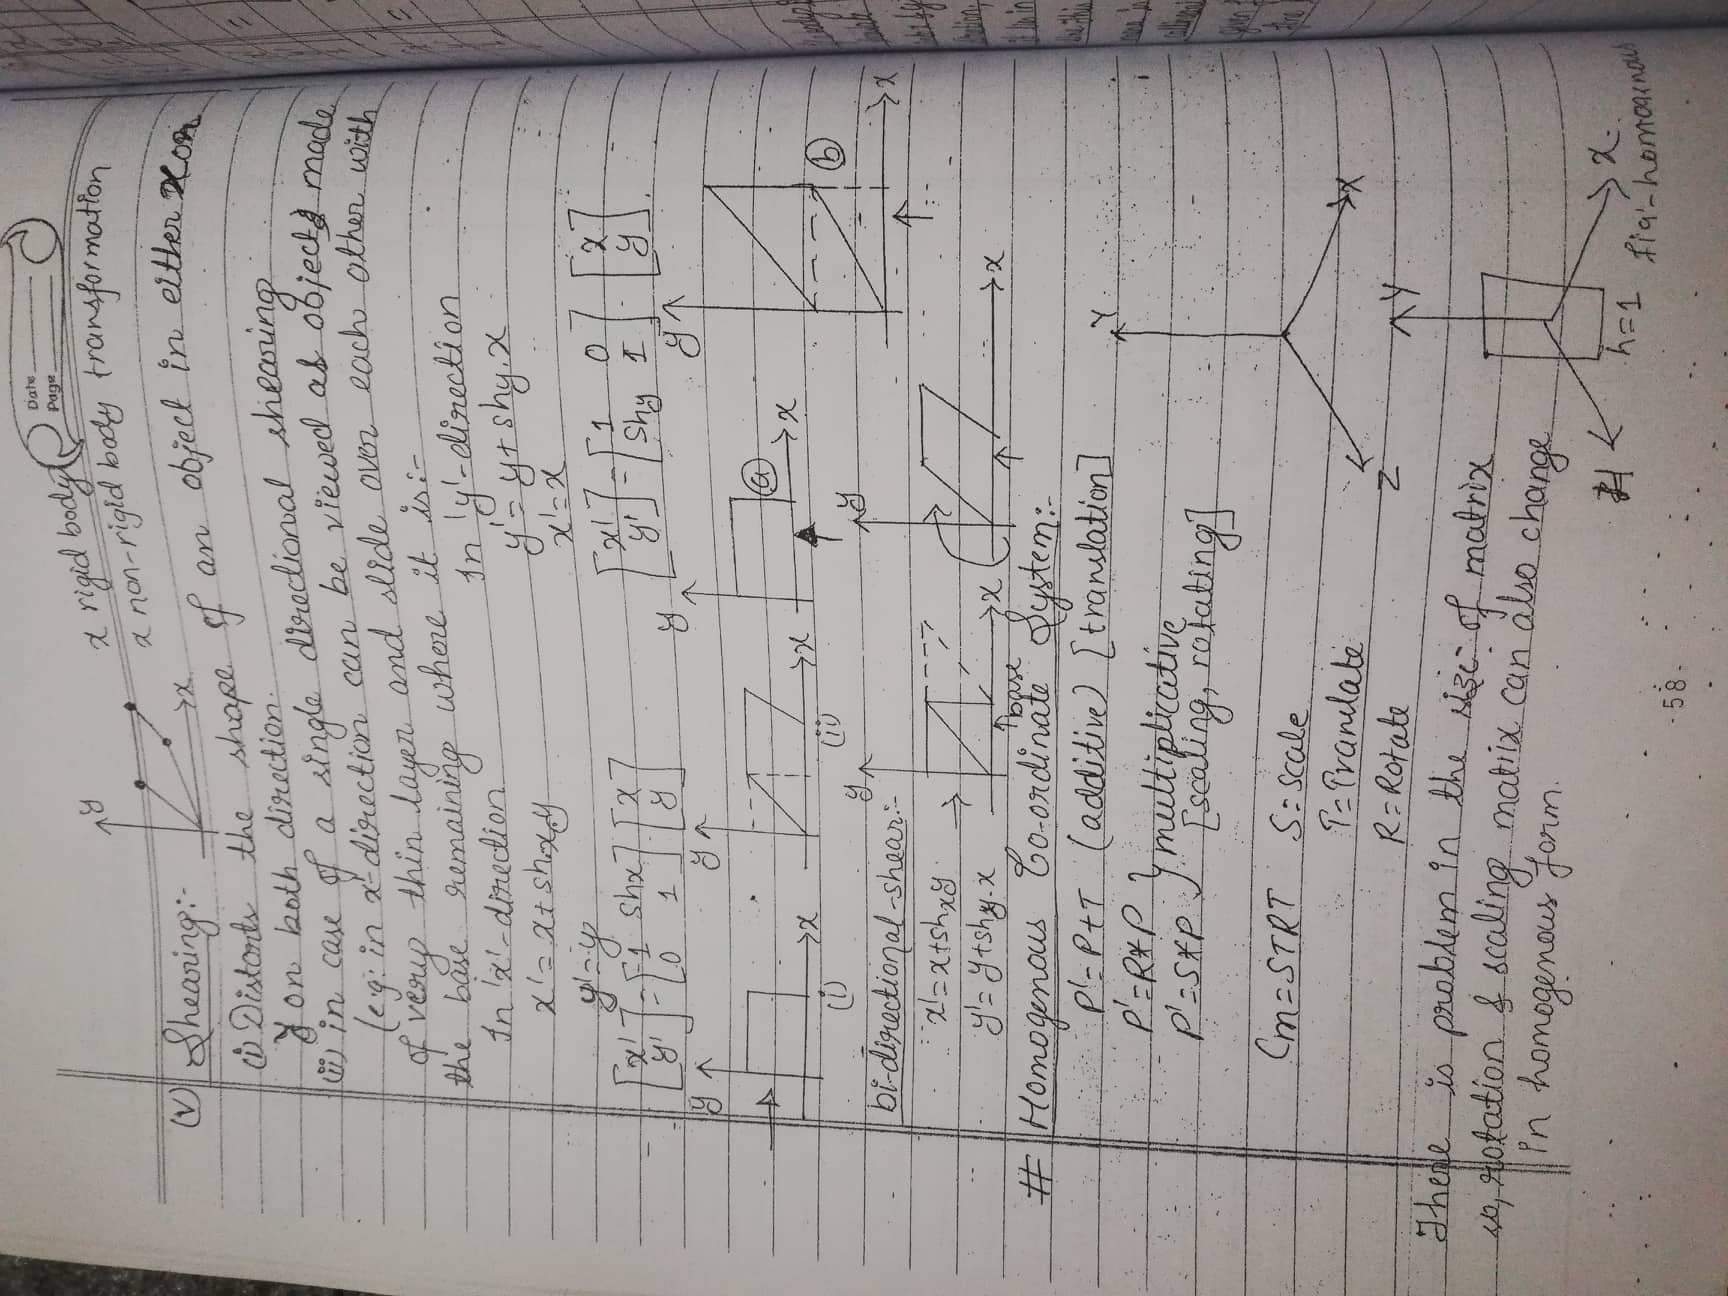 Date
Page
x rigid body
x non-rigid body transformation
y
x
(v) Shearing:-
(i) Distorts the shape of an object in either x or
y or both direction.
(ii) in case of a single directional shearing
(e.g: in x-direction can be viewed as objects made
of very thin layer and slide over each other with
the base remaining where it is:-
In 'x'-direction
x' = x + shx.y
y' = y
[x' y'] = [1 Shx 0 1] . [x y]
In 'y'-direction
y' = y + shy.x
x' = x
[x' y'] = [1 0 Shy 1] . [x y].
y x (i)
y x (ii)
y x (a)
y x (b)
bi-directional-shear:-
x' = x + shxy
y' = y + shy.x
y x base
y x
# Homogenous Co-ordinate System:-
P' = P + T (additive) [translation]
P' = R * P } multiplicative
P' = S * P [scaling, rotating]
Cm = STRT S = Scale
T = Translate
R = Rotate
Y
X
Z
There is problem in the size of matrix
so, rotation & scaling matrix can also change
in homogenous form.
Y
H
X
h=1
fig:- homogenous
-58-